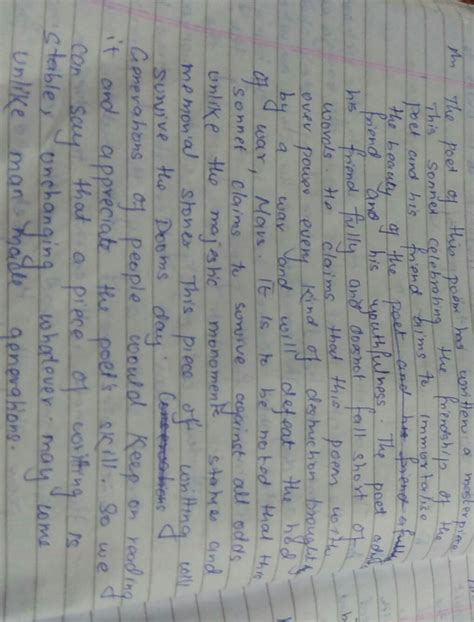 An The poet of this poem has written a masterpiece
This sonnet celebrating the friendship of the
poet and his friend aims to immortalize
the beauty of the poet and his friend
friend and his youthfulness. The poet
his friend fully and doesnot fall short of
words. He claims that this poem
over power every kind of destruction brought
by a war and will defeat the
of war, Mars. It is to be noted that this
sonnet claims to survive against all odds
unlike the majestic monoments statues and
memorial stones. This piece of writing will
survive the Dooms day.
Generations of people would keep on reading
it and appreciate the poet's skill. So we
can say that a piece of writting is
stable, unchanging whatever may come
unlike man-made generations.